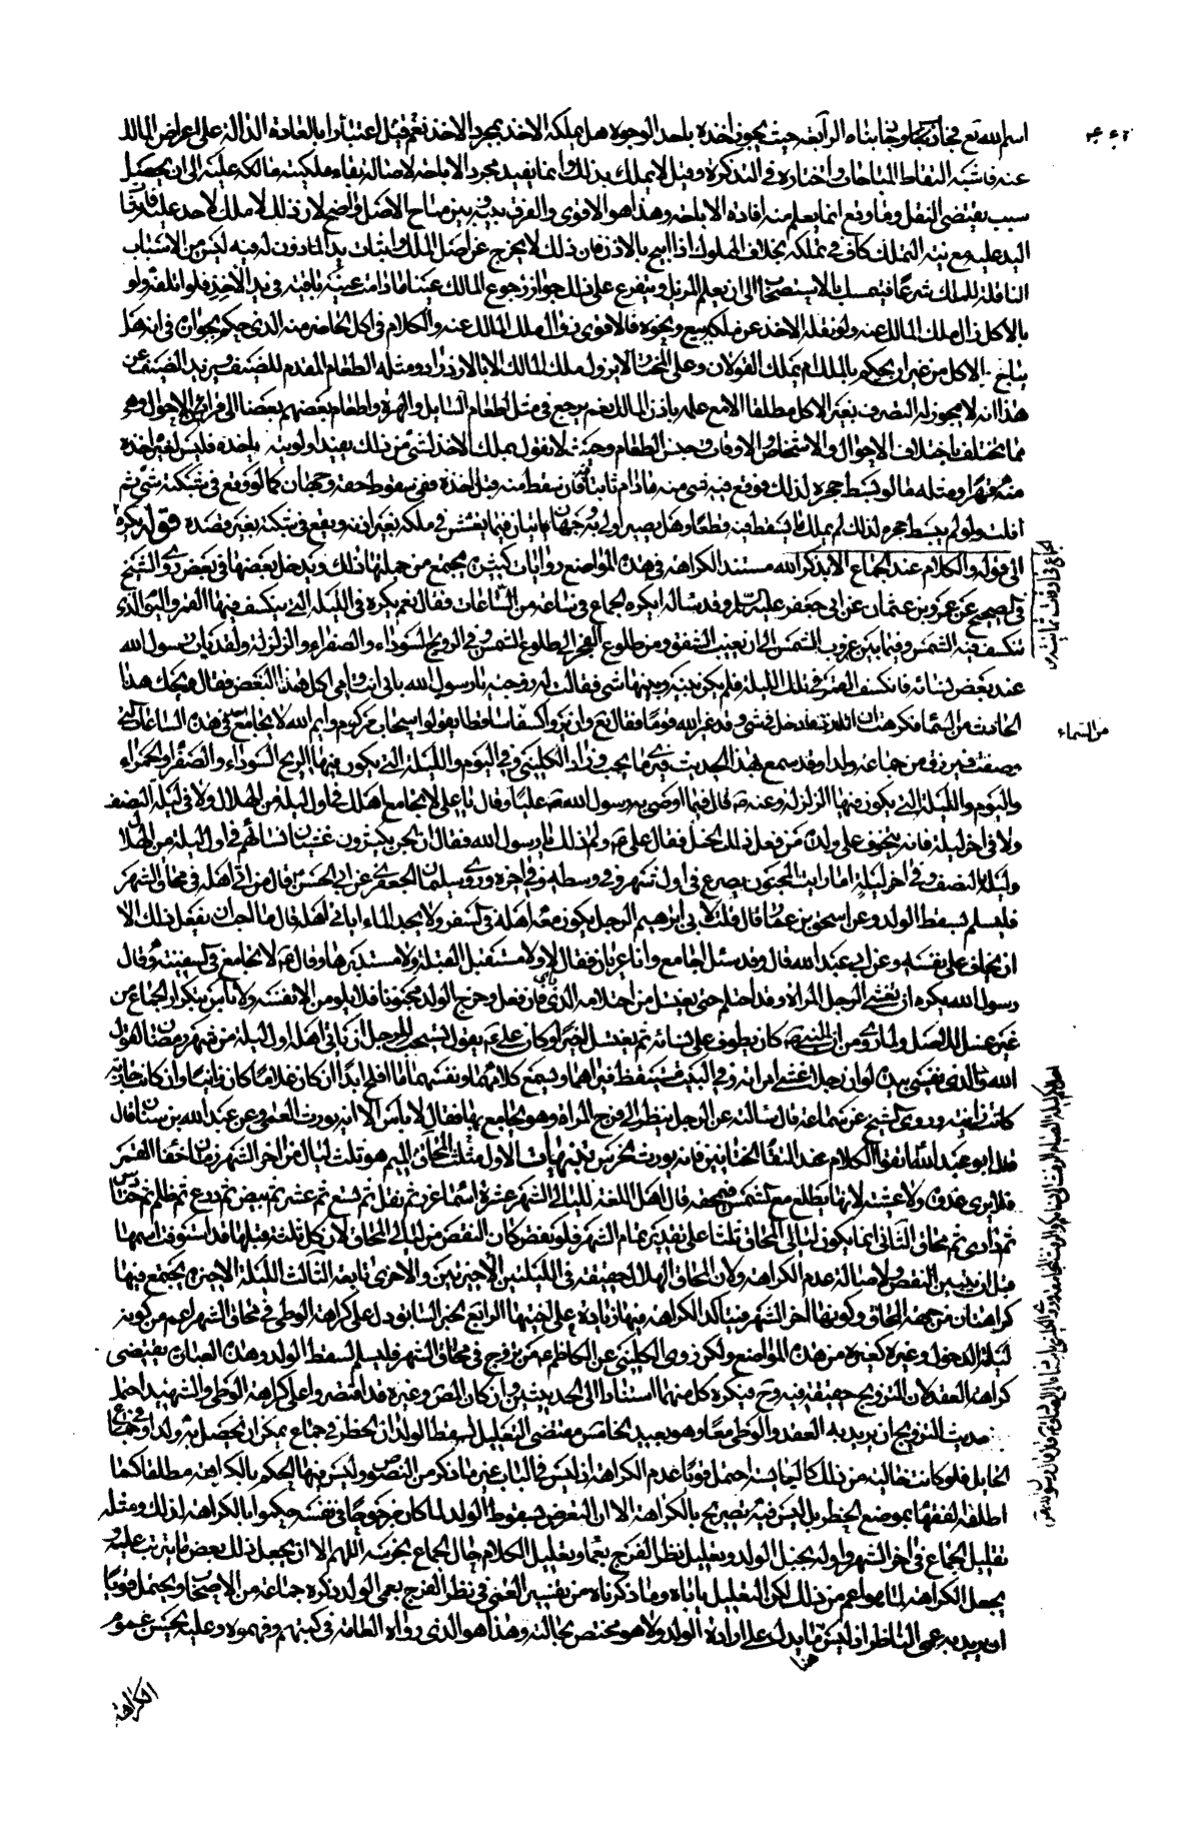 اسم الله تع حيث يجوز اخذه باحد الوجوه هل يملكه الاخذ بمجرد الاخذ نعم قيل اعتبارا بالعادة الدالة على اعراض المالك
عنه فاشبه التقاط المباحات واختاره في التذكرة وقيل لا يملك بذلك وانما يفيد مجرد الاباحة لاصالة بقاء ملكيته مالكه عليه الى ان يحصل
سبب يقتضي النقل وما وقع انما يعلم منه افادة الاباحة وهذا هو الاقوى والفرق بينه وبين مباح الاصل واضح لان ذلك لا ملك لاحد عليه
اليد عليه مع نية التملك كاف في تملكه بخلاف المملوك اذا ابيح بالاذن فان ذلك لا يخرج عن اصل الملك واثبات يد المأذون له فيه ليس من الاسباب
الناقلة للملك شرعا فيتمسك بالاستصحاب الى ان يعلم المزيل ويتفرع على ذلك جواز رجوع المالك عينا ما دامت عينه باقية في يد الاخذ فلو اتلفه ولو
بالاكل زال ملك المالك عنه ولو نقله الاخذ عن ملكه ببيع ونحوه فالاقوى زوال ملك المالك عنه والكلام في اكل الحاضر منه الذي حكم بجوازه في انه هل
يباح الاكل من غير ان يحكم بالملك ام يملك القولان وعلى المختار لا يزول ملك المالك الا بالازدراد ومثله الطعام المقدم للضيف
هذا انه لا يجوز له التصرف بغير الاكل مطلقا الا مع علمه باذن المالك نعم يرجع في مثل اطعام السائل والهرة واطعام بعضهم بعضا الى قرائن الاحوال وهو
مما يختلف باختلاف الاحوال والاشخاص والاوقات وجنس الطعام وحيث لا نقول بملك الاخذ لشئ من ذلك يفيد اولويته باخذه فليس لغيره اخذه
منه قهرا ومثله ما لو بسط حجره لذلك فوقع فيه شئ منه ما دام ثابتا فان سقط منه قبل اخذه ففي سقوط حقه وجهان كما لو وقع في شبكته شئ ثم
افلت ولو لم يبسط حجره لذلك لم يملك ما يسقط فيه قطعا وهل يصير اولى به وجهان ياتيان فيما يعشش في ملكه بغير اذنه ويقع في شبكته بغير قصده قوله يكره
الى قوله والكلام عند الجماع الا بذكر الله مستند الكراهة في هذه المواضع روايات كثيرة يجتمع من جملتها ذلك ويدخل بعضها في بعض روى الشيخ
في الصحيح عن عمرو بن عثمان عن ابي جعفر عليه السلم وقد ساله ايكره الجماع في ساعة من الساعات فقال نعم يكره في الليلة التي ينكسف فيها القمر واليوم الذي
تنكسف فيه الشمس وفيما بين غروب الشمس الى ان يغيب الشفق ومن طلوع الفجر الى طلوع الشمس وفي الريح السوداء والصفراء والزلزلة ولقد بات رسول الله
عند بعض نسائه فانكسف القمر في تلك الليلة فلم يكن منه وبينها شئ فقالت له زوجته يا رسول الله بابي انت وامي اكل هذا البغض فقال ويحك هذا
الحادث من السماء فكرهت ان اتلذذ فادخل في شئ وقد عير الله قوما فقال تع وان يروا كسفا من السماء ساقطا يقولوا سحاب مركوم وايم الله لا يجامع احد في هذه الساعات التي
وصفت فيرزق من جماعه ولدا وقد سمع بهذا الحديث فيرى ما يحب وزاد الكليني وفي اليوم والليلة التي يكون فيها الريح السوداء والصفراء والحمراء
واليوم والليلة التي يكون فيها الزلزلة وعنه ع قال فيما اوصى به رسول الله ص عليا وقال يا علي لا تجامع اهلك في اول ليلة من الهلال ولا في ليلة النصف
ولا في اخر ليلة فانه يتخوف على ولد من فعل ذلك الخبل فقال علي ع ولم ذلك يا رسول الله فقال ان الجن يكثرون غشيان نسائهم في اول ليلة من الهلال
وليلة النصف وفي اخر ليلة اما رايت المجنون يصرع في اول شهر وفي وسطه وفي اخره وروى سليمان الجعفري عن ابي الحسن ع قال من اتى اهله في محاق الشهر
فليسلم لسقط الولد وعن اسحق بن عمار قال قلت لابي ابرهيم الرجل يكون معه اهله في السفر ولا يجد الماء ايأتي اهله قال ما احب ان يفعل ذلك الا
ان يخاف على نفسه وعن ابي عبد الله قال وقد سئل اجامع وانا عريان فقال لا ولا مستقبل القبلة ولا مستدبرها وقال ع لا تجامع في السفينة وقال
رسول الله يكره ان يغشى الرجل المراة وقد احتلم حتى يغتسل من احتلامه الذي راى فان فعل وخرج الولد مجنونا فلا يلومن الا نفسه ولا باس بتكرار الجماع من
غير غسل لما روي من ان النبي ص كان يطوف على نسائه ثم يغتسل اخيرا وكان علي ع يقول يستحب للرجل ان ياتي اهله اول ليلة من شهر رمضان لقول
الله والذي نفسي بيده لو ان رجلا غشي امراته وفي البيت مستيقظ يراهما ويسمع كلامهما ونفسهما ما افلح ابدا ان كان غلاما كان زانيا وان كانت جارية
كانت زانية وروى الشيخ عن سماعة قال سالته عن الرجل ينظر الى فرج المراة وهو يجامعها فقال لا باس الا انه يورث العمى وعن عبد الله بن سنان قال
قال ابو عبد الله اتقوا الكلام عند التقاء الختانين فانه يورث الخرس تنبيهات الاول مثلث الميم هو ثلث ليال من اخر الشهر
فلا يرى غدوة ولا عشية لانها يطلع مع الشمس فيمحقه قال اهل اللغة لليالي الشهر عشرة اسماء غرر ثم نفل ثم تسع ثم عشر ثم بيض ثم درع ثم ظلم ثم حنادس
ثم دادي ثم محاق الثاني انما يكون ليالي المحاق ثلثا على تقدير تمام الشهر فلو نقص كان النقص من ليالي المحاق لان كل ثلث قبلها قد استوفت اسمها
قبل ان يتبين النقص ولاصالة عدم الكراهة ولان المحاق الهلال حقيقة في الليلتين الاخيرتين والاخرى تابعة الثالث الليلة الاخيرة يجتمع فيها
كراهتان من جهة المحاق وكونها اخر الشهر فيتاكد الكراهة فيها زيادة على اختيها الرابع الخبر السابق دل على كراهة الوطي في محاق الشهر اعم من كونه
ليلة الدخول وغيره كغيره من هذه المواضع ولكن روى الكليني عن الكاظم ع من تزوج في محاق الشهر فليسلم لسقط الولد وهذه العبارة يقتضي
كراهة العقد لان التزويج حقيقة فيه وح فيكره كل منهما استنادا الى الحديثين وان كان المص وغيره قد اقتصروا على كراهة الوطي والشهيد احتمل
حديث التزويج ان يريد به العقد والوطي معا وهو بعيد الخامس مقتضى التعليل لسقط الولد ان الحظر في جماع يمكن ان يحصل به ولد او في جماع
الحامل فلو كانت خالية من ذلك كاليائسة احتمل قويا عدم الكراهة اذ ليس في الباب غير ما ذكر من النصوص وليس فيها الحكم بالكراهة مطلقا كما
اطلقه الفقهاء بموضع الحظر بل ليس فيه تصريح بالكراهة الا ان التعرض لسقوط الولد لما كان مرجوحا في نفسه حكموا بالكراهة لذلك ومثله
تعليل الجماع في اخر الشهر واوله بخبل الولد وتعليل نظر الفرج بعماه وتعليل الكلام حال الجماع بخرسه اللهم الا ان يجعل ذلك بعض ما يترتب عليه
يجعل الكراهة لما هو اعم من ذلك لكن التعليل ياباه وما ذكرناه من تفسير العمى في نظر الفرج بعمى الولد ذكره جماعة من الاصحاب ويحتمل قويا
ان يريد به عمى الناظر اذ ليس هنا ما يدل على ارادة الولد ولا هو مختص بحالته وهذا هو الذي رواه العامة في كتبهم وفهموه وعليه يحسن عموم
الكراهة
من السماء